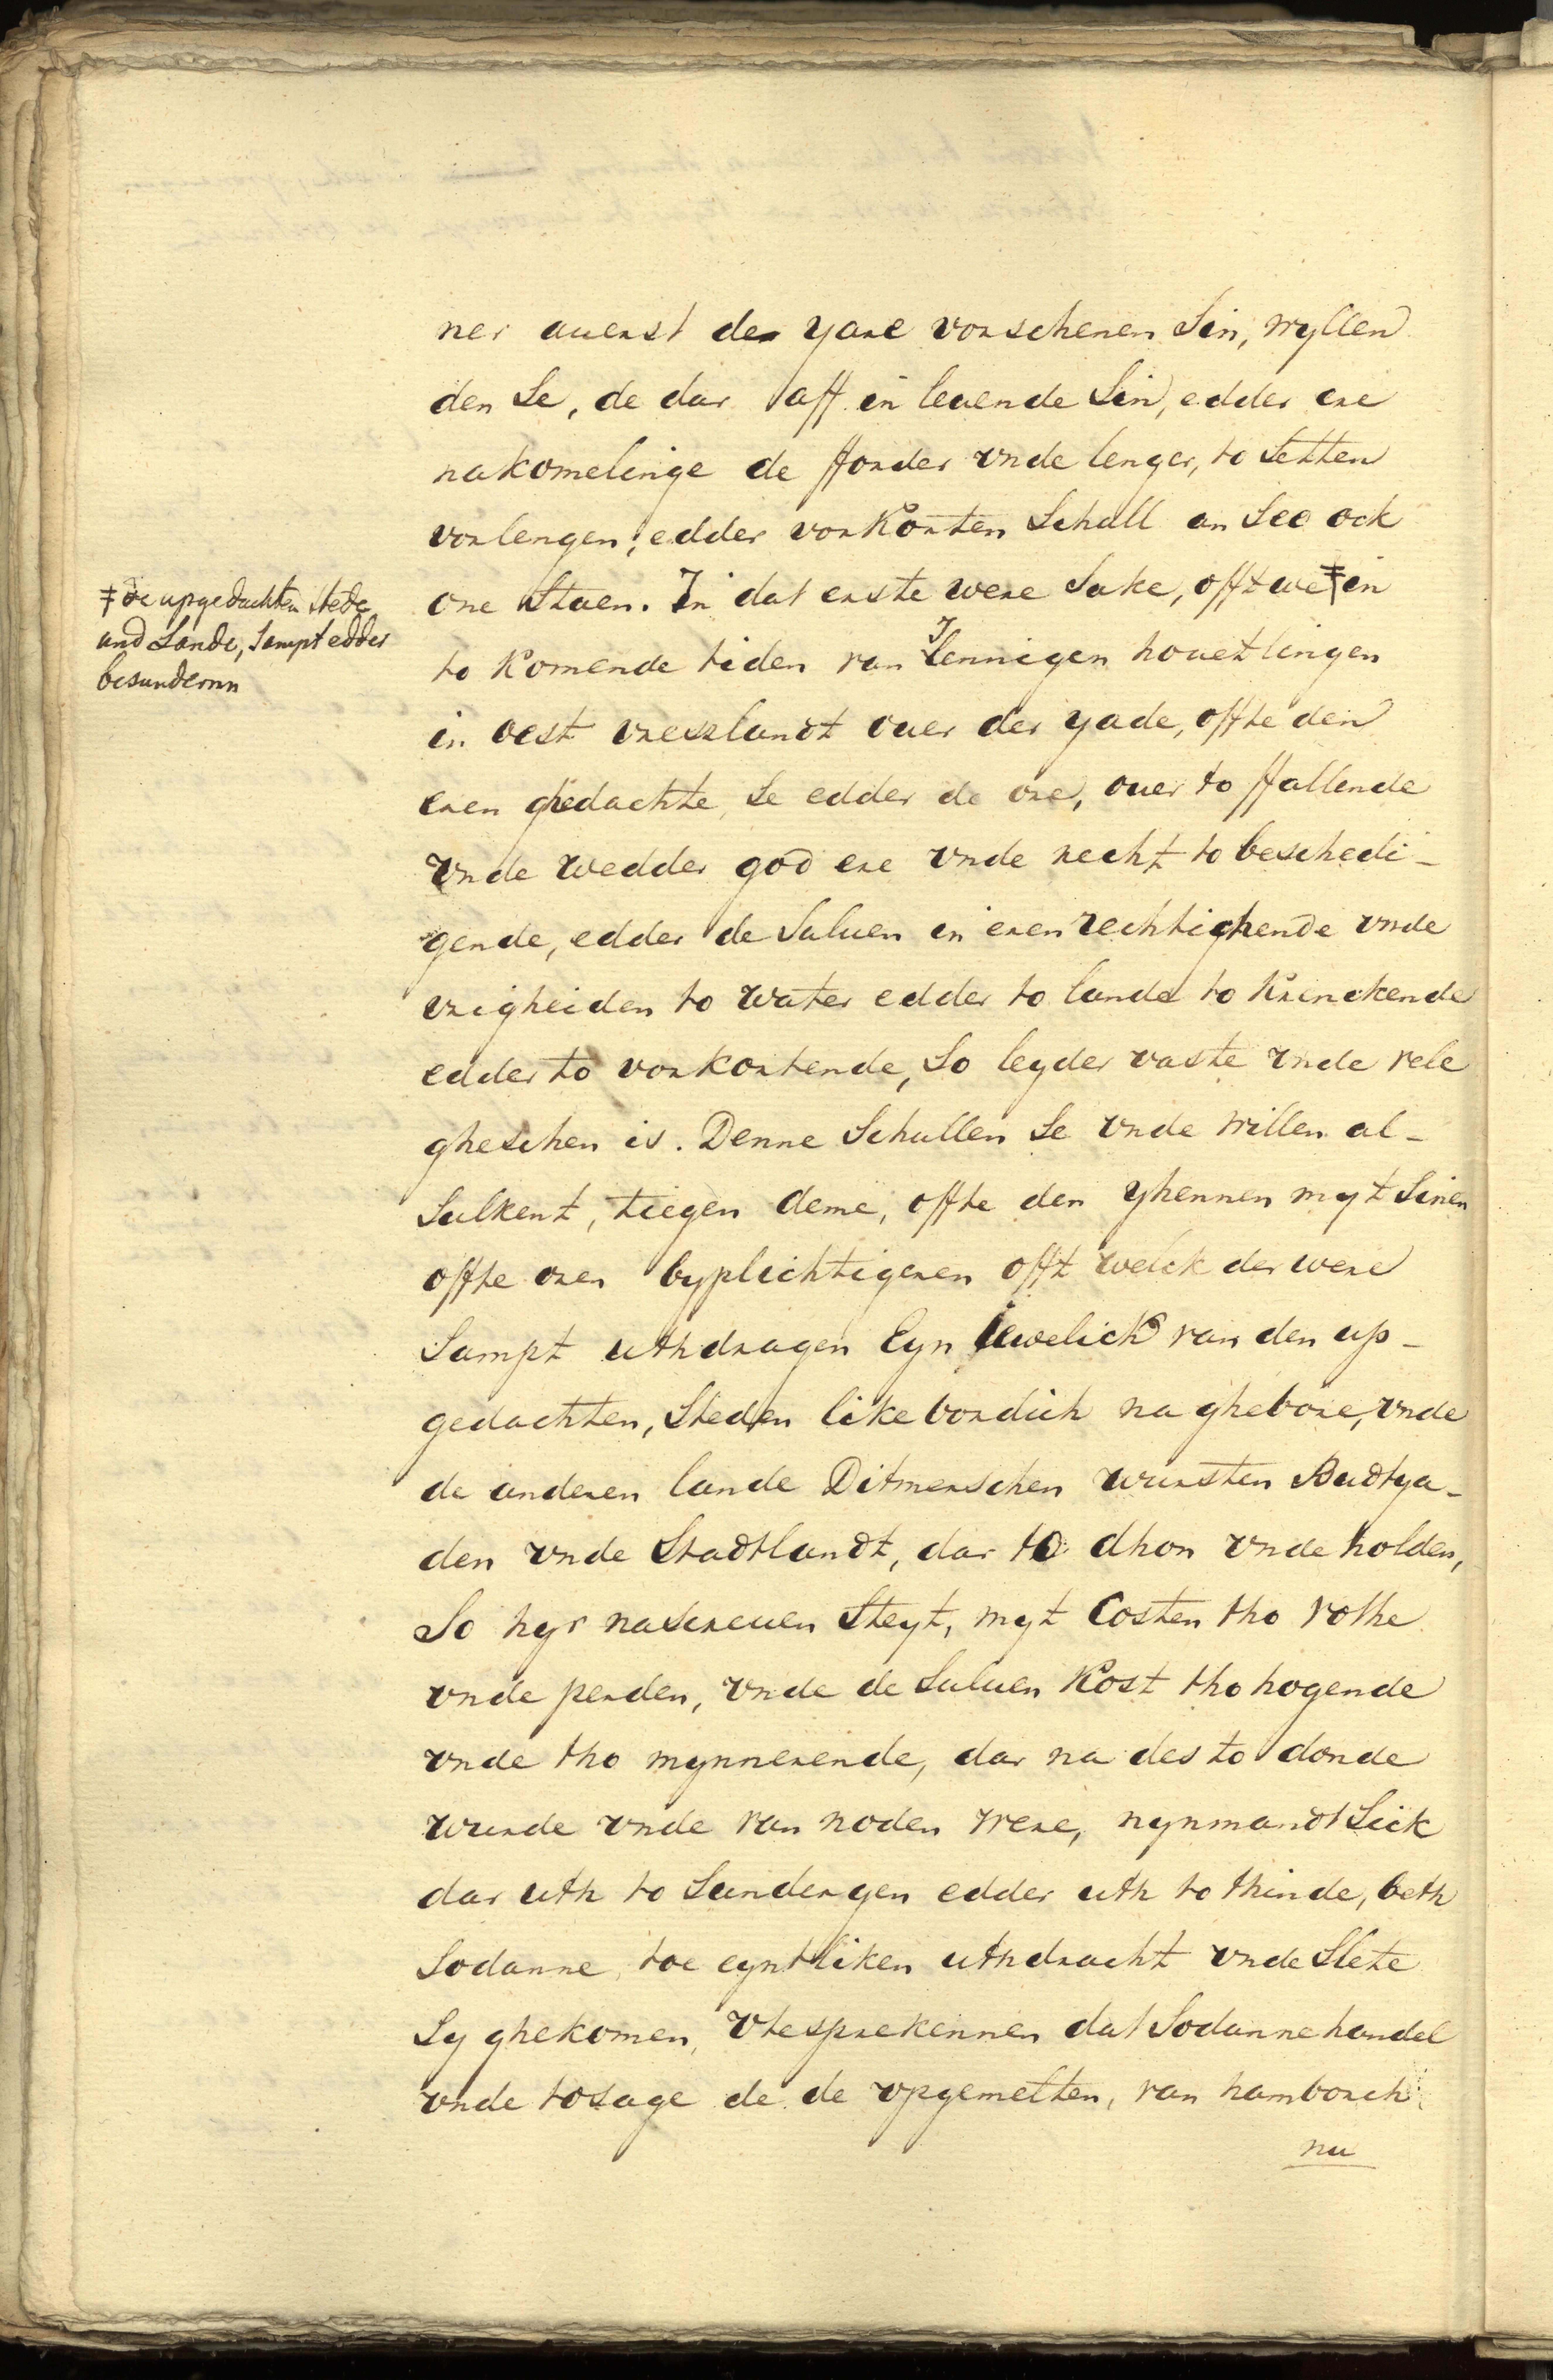 ner auerst der yare vorschenen Sin, wyllen
den Se, de dar aff in leuende Sin, edder ere
nakomelinge de fforder vnde lenger, to Setten
vorlengen, edder vorkorten Schall an See ock
one Staen. In dat erste were Sake, offt we ‡ in
‡ de upgedachten Stede
und Lande, Sampt edder
besundernn
to komende tiden van Jennigen houetlingen
in oest vreszlandt ouer der yade, offte den
eren ghedachte, Se edder de ore, ouer to ffallende
vnde wedder god ere vnde recht to beschedi-
gende, edder de Suluen in eren rechtichende vnde
vrigheiden to water edder to lande to krenckende
edder to vorkortende, So leyder vaste vnde vele
gheschen is. Denne Schullen Se vnde willen al-
Sulkent, tiegen deme, offte den yhennen myt Sinen
offte oren byplichtigeren offt welck der were
Sampt uthdragen Eyn iewelick van den up-
gedachten, Steden likebordich na ghebore, vnde
de anderen lande Ditmerschen wursten Budtya-
den vnde Stadtlandt, dar to dhon vnde holden,
So hyr nascreuen Steyt, myt Costen tho vothe
vnde perden, vnde de Suluen Kost tho hogende
vnde tho mynnerende, dar na des to donde
wurde vnde van noden were, nynmandt Sick
dar uth to Sundergen edder uth to thinde, beth
Sodanne, toe eyntliken uthdracht vnde Slete
Sy ghekomen, vtesprekennen dat Sodanne handel
vnde tosage de de vpgemelten, van hamborch
nu